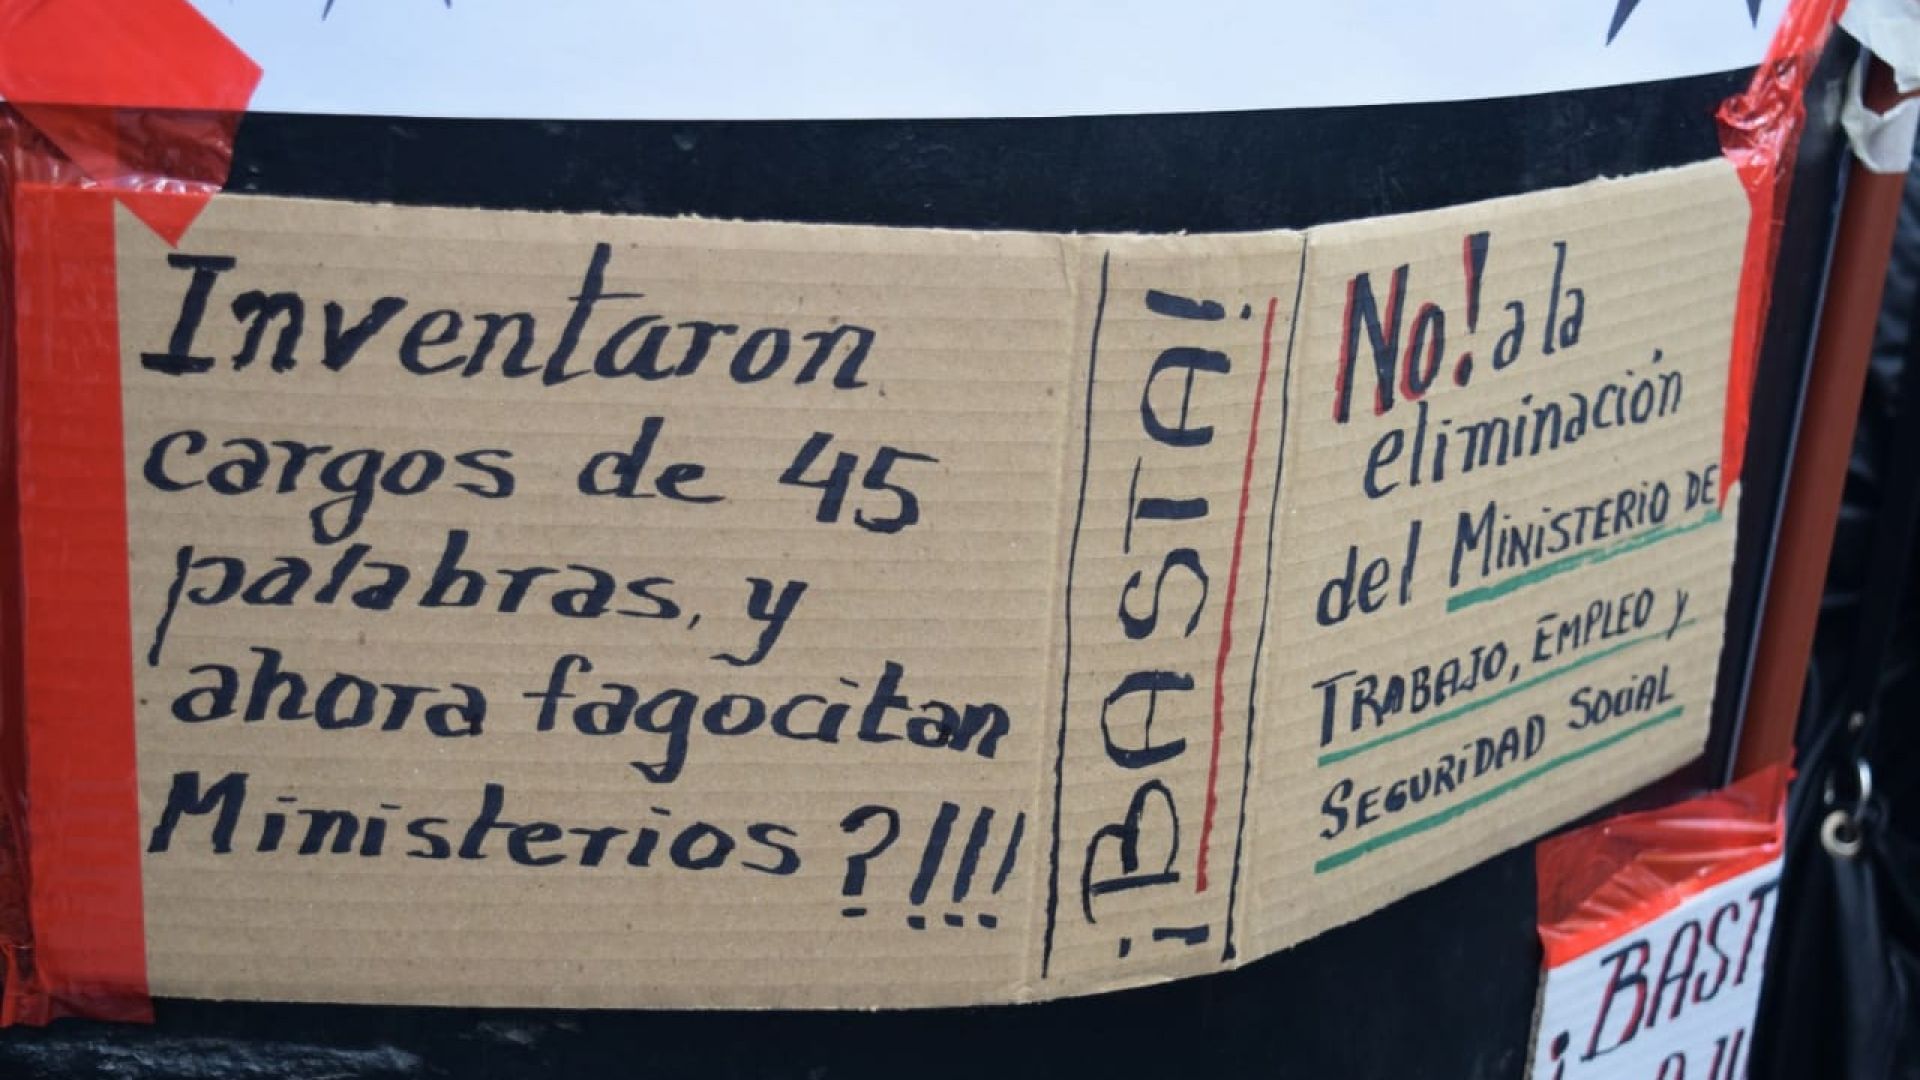 Inventaron
cargos de 45
palabras, y
ahora fagocitan
Ministerios ?!!!
¡BASTA!
No! a la
eliminación
del MINISTERIO DE
TRABAJO, EMPLEO y
SEGURIDAD SOCIAL
¡BAST